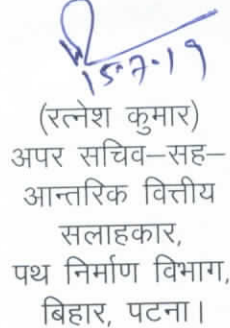 15.7.19
(रत्नेश कुमार)
अपर सचिव–सह–
आन्तरिक वित्तीय
सलाहकार,
पथ निर्माण विभाग,
बिहार, पटना।